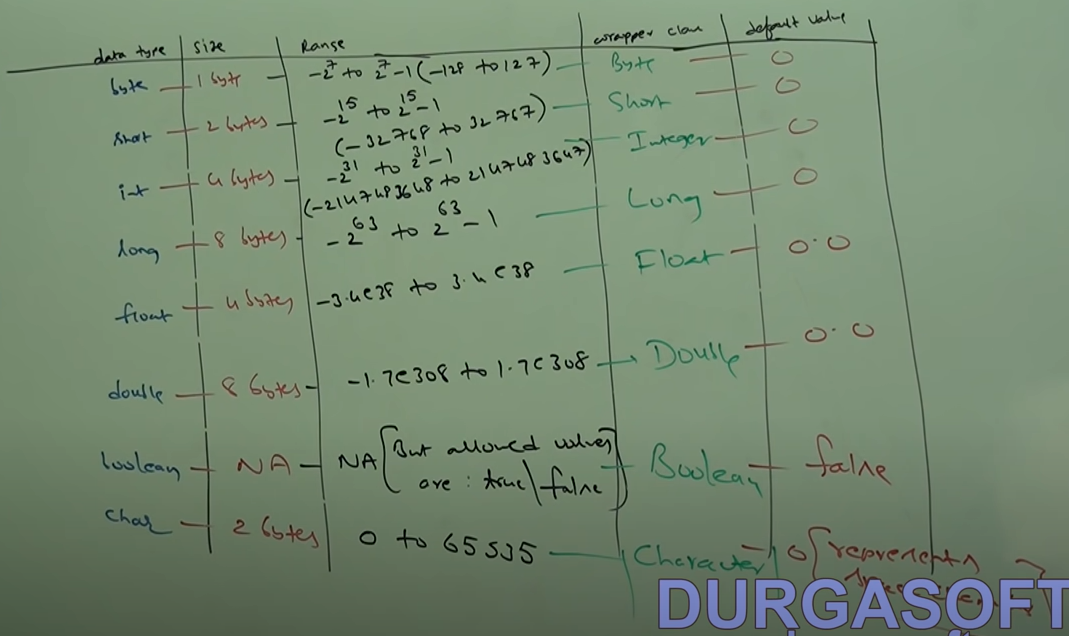 data type size Range wrapper class default value
byte 1 byte -2^7 to 2^7-1 (-128 to 127) Byte 0
short 2 bytes -2^15 to 2^15-1 Short 0
(-32768 to 32767)
int 4 bytes -2^31 to 2^31-1 Integer 0
(-2147483648 to 2147483647)
long 8 bytes -2^63 to 2^63-1 Long 0
float 4 bytes -3.4e38 to 3.4e38 Float 0.0
double 8 bytes -1.7e308 to 1.7e308 Double 0.0
boolean NA NA [But allowed values Boolean false
are : true\false]
char 2 bytes 0 to 65535 Character 0 [represents
DURGASOFT